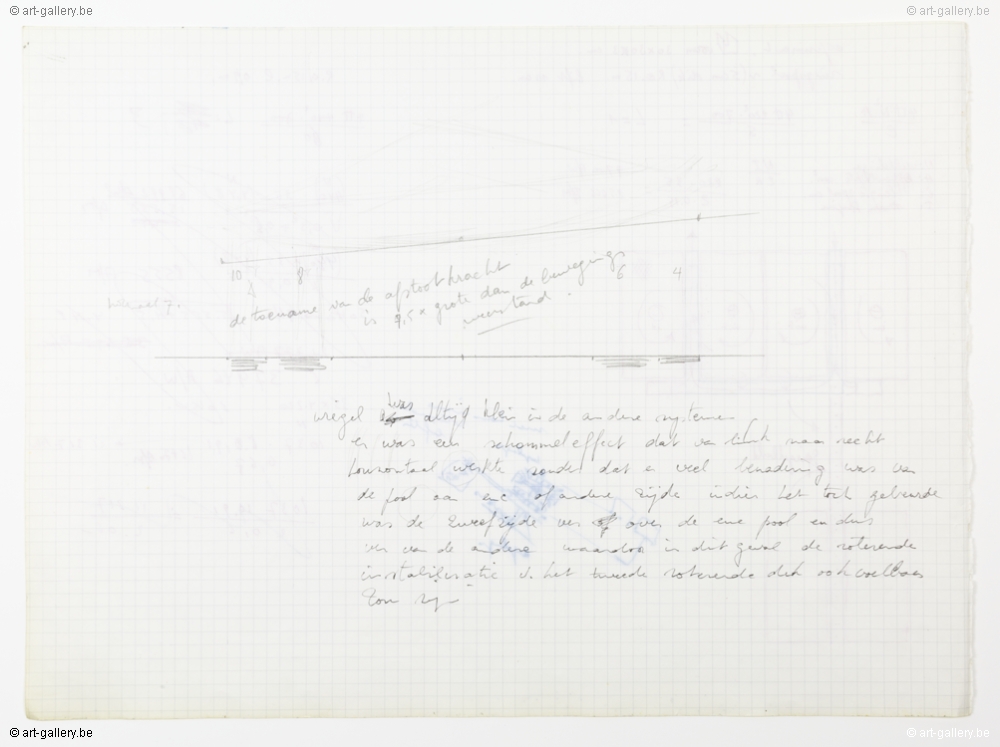 © art-gallery.be
© art-gallery.be
10 8 6 4
de toename van de afstootkracht
is 1,5 x grote dan de beweging
weerstand.
wiegel was altijd klein in de andere systemen
er was een schommeleffect dat van links naar recht
horizontaal werkte zonder dat er veel benadering was van
de pool aan ene of andere zijde indien het toch gebeurde
was de zweefzijde ver over de ene pool en dus
ver van de andere waardoor in dit geval de roterende
instabilisatie v. het tweede roterende ook voelbaar
zou zijn
© art-gallery.be
© art-gallery.be